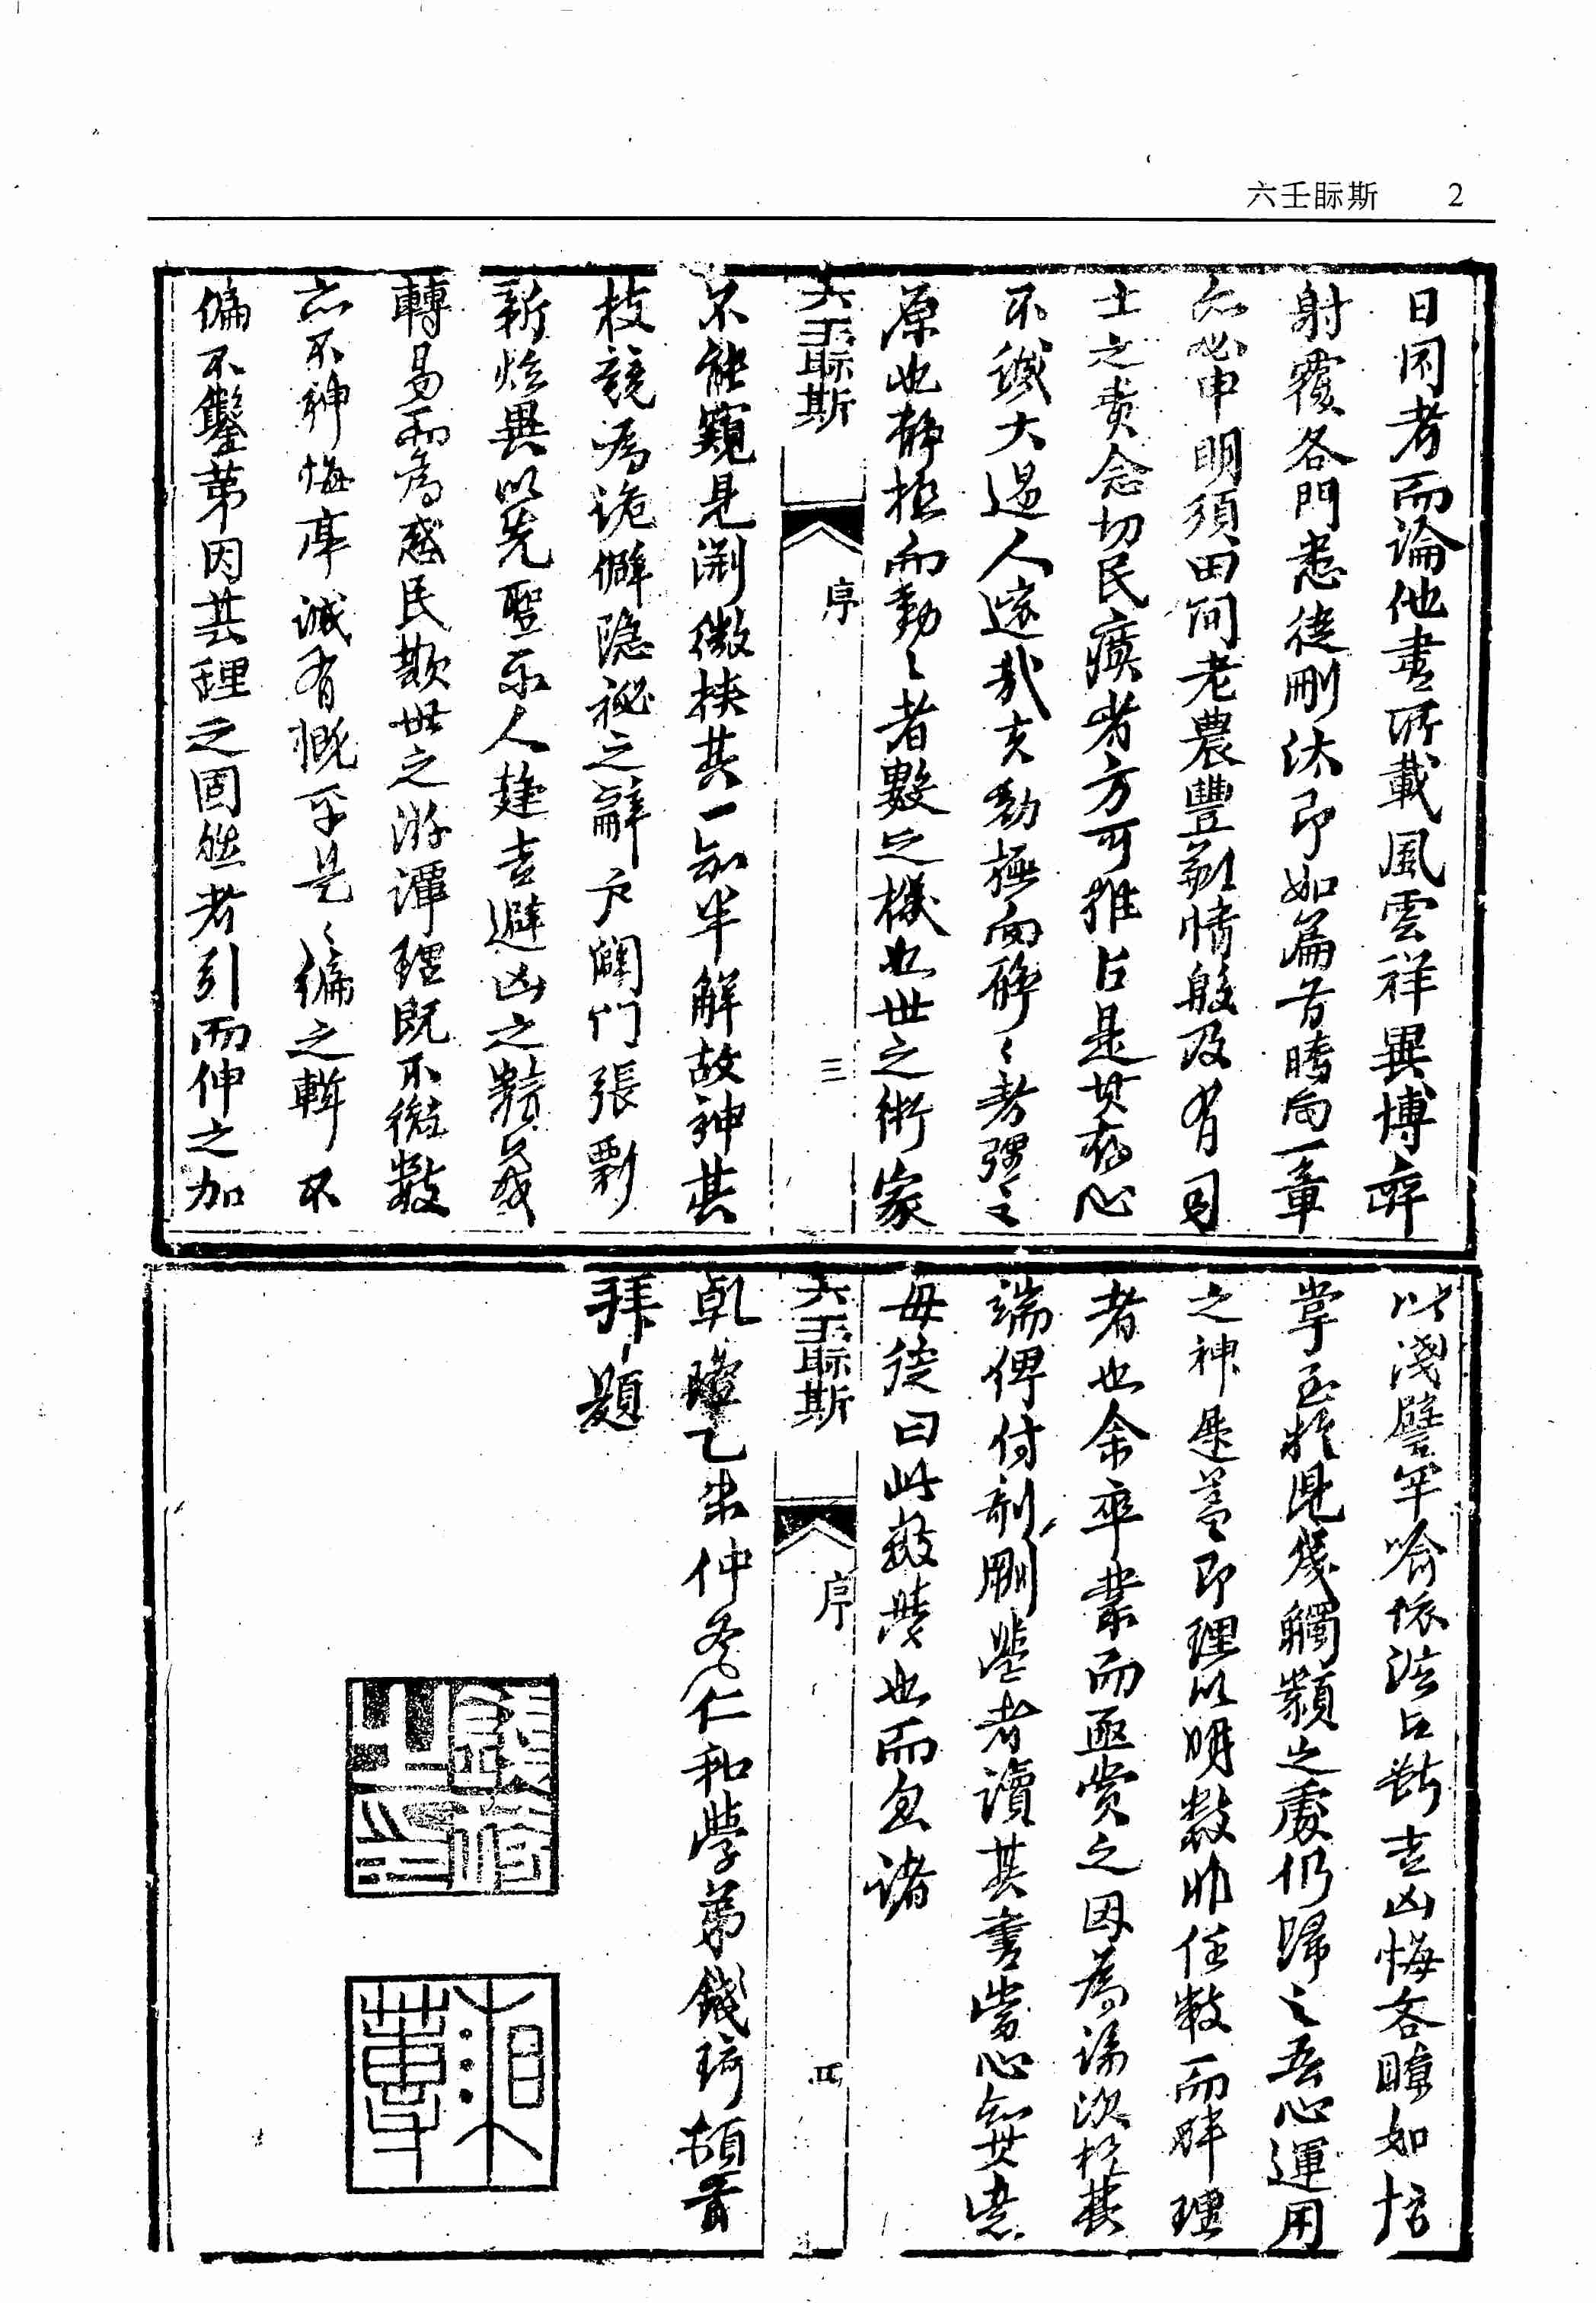 六壬眎斯 2
日同考而論他書所載風雲祥異博弈
射覆各門悉從刪汰即如篇首晴雨一章
亦必申明須田間老農豐歉情殷及有司
士之責念切民瘼者方可推占是其存心
不誠大過人遠哉夫動極而靜靜者彊之
原也靜極而動動者數之機也世之術家
六壬眎斯 序 三
不能窺見淵微挾其一知半解故神其
枝競為詭僻隱祕之辭戶闢門張剽
新炫異以先聖示人趨吉避凶之精義
轉易而為惑民欺世之游譚理既不徵數
亦不神悔庵誠有慨乎是是編之輯不
偏不鑿第因其理之固然者引而伸之加
以淺譬罕喻依法占斷吉凶悔吝瞭如指
掌至於見幾觸類之處仍歸之吾心運用
之神是蓋即理以明數非任數而畔理
者也余卒業而亟賞之因為論次於其
端俾付剞劂鑒者讀其書當心知其意
毋徒曰此數學也而忽諸
六壬眎斯 序 四
乾隆乙未仲冬仁和學弟錢琦頓首
拜題